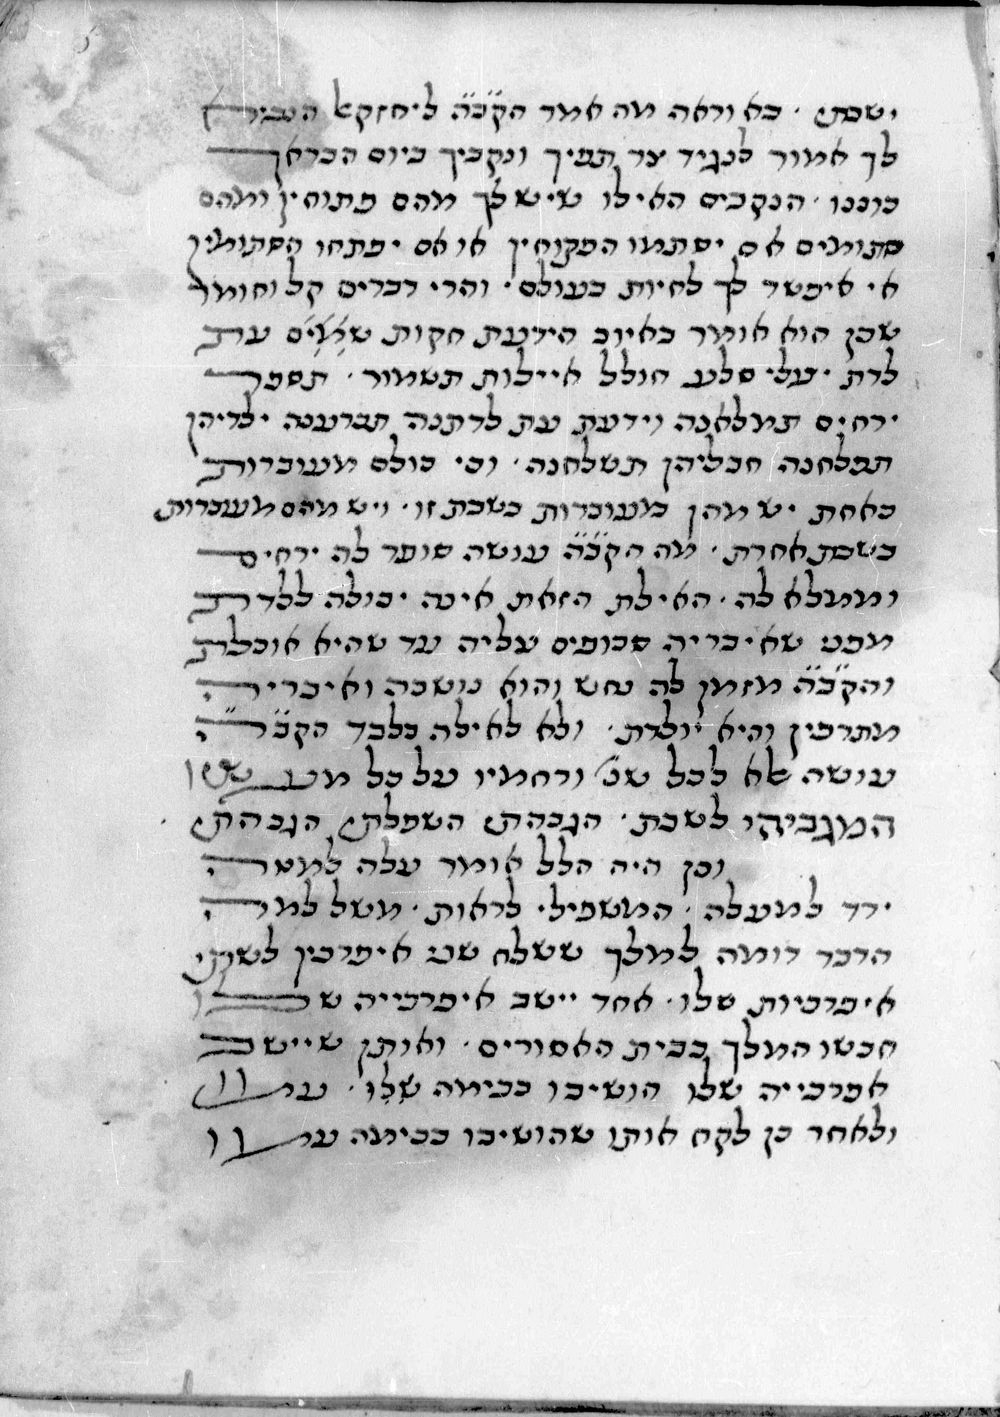 ישבתי · בא וראה מה אמר הק̈ב̈ה̈ ליחזקאל הנביא
לך אמור לנגיד צר תפיך ונקביך ביום הבראך
כוננו · הנקבים האילו שיש לך מהם פתוחין ומהם
סתומים אם יסתמו הפקוחין או אם יפתחו הסתומין
אי איפשר לך לחיות בעולם · והרי דברים קל וחומר
שכן הוא אומר באיוב הידעת חקות שמים עת
לדת יעלי סלע חולל איילות תשמור · תספר
ירחים תמלאנה וידעת עת לדתנה תכרענה ילדיהן
תפלחנה חבליהן תשלחנה · וכי כולם מעוברות
כאחת יש מהן מעוברות בשבת זו · ויש מהם מעוברות
בשבת אחרת · מה הק̈ב̈ה̈ עושה סופר לה ירחים
וממלא לה · האילת הזאת אינה יכולה ללדת
מפני שאיבריה סכופים עליה עד שהיא אוכלת
והק̈ב̈ה̈ מזמן לה נחש והוא נושכה ואיבריה
מתרפין והיא יולדת · ולא לאילה בלבד הק̈ב̈ה̈
עושה אלא לכל שנ׳ ורחמיו על כל מעשיו
המגביהי לשבת · הגבהתי השפלתי הגבהתי
וכן היה הלל אומר עלה למטה
ירד למעלה · המשפילי לראות · משל למה
הדבר דומה למלך ששלח שני איפרכין לשתי
איפרכיות שלו · אחד יישב איפרכייה שלו
חבשו המלך בבית האסורים · ואותו שיישב
אפרכייה שלו הושיבו בבימה שלו · ערו
ולאחר כן לקח אותו שהושיבו בבימה ערו